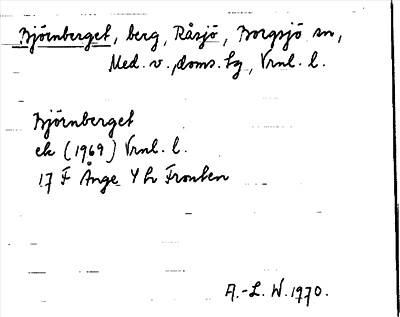 Björnberget, berg, Råsjö, Borgsjö sn,
Med. v. doms. tg, Vrnl. l.
Björnberget
ek (1969) Vrnl. l.
17 F Ånge Y h Fronten
A.-L. W. 1970.